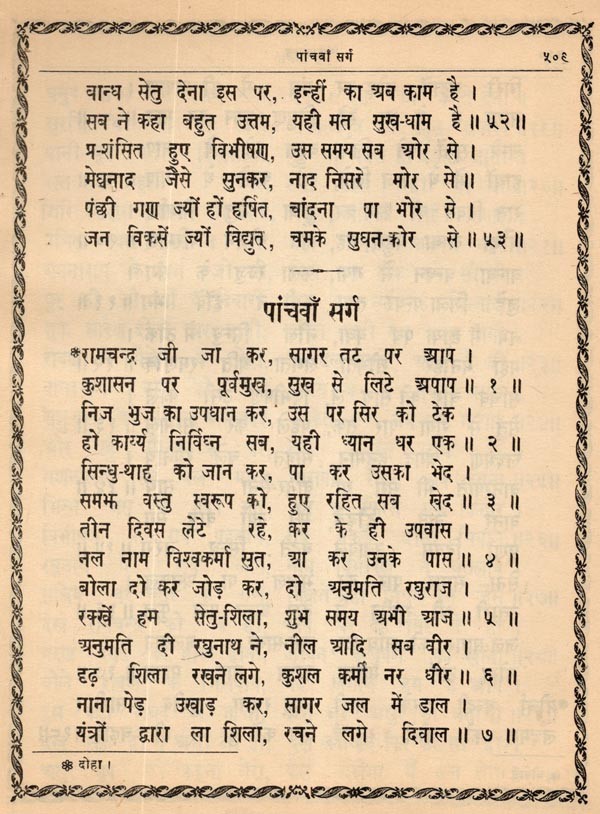 पांचवाँ सर्ग ५०९
बान्ध सेतु देना इस पर, इन्हीं का अब काम है ।
सब ने कहा बहुत उत्तम, यही मत सुख-धाम है ॥ ५२ ॥
प्र-शंसित हुए विभीषण, उस समय सब ओर से ।
मेघनाद जैसे सुनकर, नाद निसरे मोर से ॥
पंछी गण ज्यों हों हर्षित, चांदना पा भोर से ।
जन विकसें ज्यों विद्युत्, चमके सुघन-कोर से ॥ ५३ ॥
पांचवाँ सर्ग
*रामचन्द्र जी जा कर, सागर तट पर आप ।
कुशासन पर पूर्वमुख, सुख से लिटे अपाप ॥ १ ॥
निज भुज का उपधान कर, उस पर सिर को टेक ।
हो कार्य्य निर्विघ्न सब, यही ध्यान धर एक ॥ २ ॥
सिन्धु-थाह को जान कर, पा कर उसका भेद ।
समझ वस्तु स्वरूप को, हुए रहित सब खेद ॥ ३ ॥
तीन दिवस लेटे रहे, कर के ही उपवास ।
नल नाम विश्वकर्मा सुत, आ कर उनके पास ॥ ४ ॥
बोला दो कर जोड़ कर, दो अनुमति रघुराज ।
रक्खें हम सेतु-शिला, शुभ समय अभी आज ॥ ५ ॥
अनुमति दी रघुनाथ ने, नील आदि सब वीर ।
दृढ़ शिला रखने लगे, कुशल कर्मी नर धीर ॥ ६ ॥
नाना पेड़ उखाड़ कर, सागर जल में डाल ।
यंत्रों द्वारा ला शिला, रचने लगे दिवाल ॥ ७ ॥
* दोहा ।